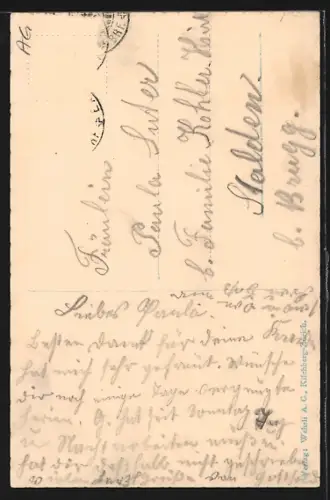 AG
Fräulein
Paula Suter
b. Familie Kohler
Stalden.
b. Brugg.
Liebes Paula.
Besten Dank für deine Karte
hat mich sehr gefreut. Wünsche
dir noch einige Tage vergnügte
Ferien. G. hat seit Sonntag
u Nacht arbeiten müssen
hat dir deshalb nicht geschrieben
von
Verlag: Wehrli A. G., Kilchberg-Zürich.